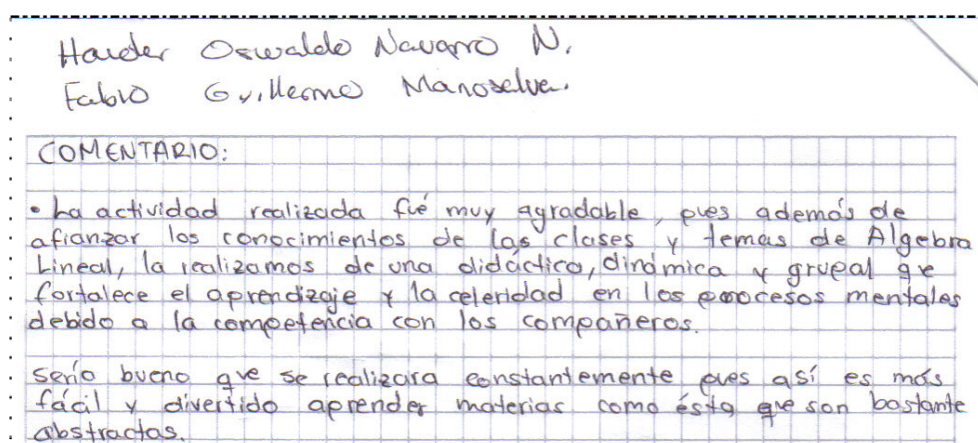 Hander Oswaldo Navarro N.
Fabio Guillermo Manoselva.
COMENTARIO:
• La actividad realizada fué muy agradable, pues además de
afianzar los conocimientos de las clases y temas de Algebra
Lineal, la realizamos de una didáctica, dinámica y grupal que
fortalece el aprendizaje y la celeridad en los procesos mentales
debido a la competencia con los compañeros.
Sería bueno que se realizara constantemente pues así es más
fácil y divertido aprender materias como ésta que son bastante
abstractas.